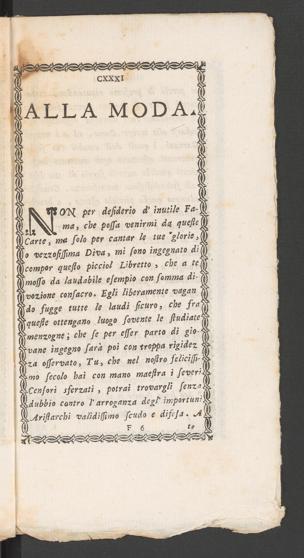 CXXXI
ALLA MODA.
NON per desiderio d' inutile Fa-
ma, che possa venirmi da queste
Carte, ma solo per cantar le tue glorie,
o vezzosissima Diva, mi sono ingegnato di
compor questo picciol Libretto, che a te
mosso da laudabile esempio con somma di-
vozione consacro. Egli liberamente vagan
do fugge tutte le laudi sicuro, che fra
queste ottengano luogo sovente le studiate
menzogne; che se per esser parto di gio-
vane ingegno sarà poi con troppa rigidez
za osservato, Tu, che nel nostro felicissi-
mo secolo hai con mano maestra i severi
Censori sferzati, potrai trovargli senza
dubbio contro l'arroganza degl' importuni
Aristarchi validissimo scudo e difesa. A
F 6 te